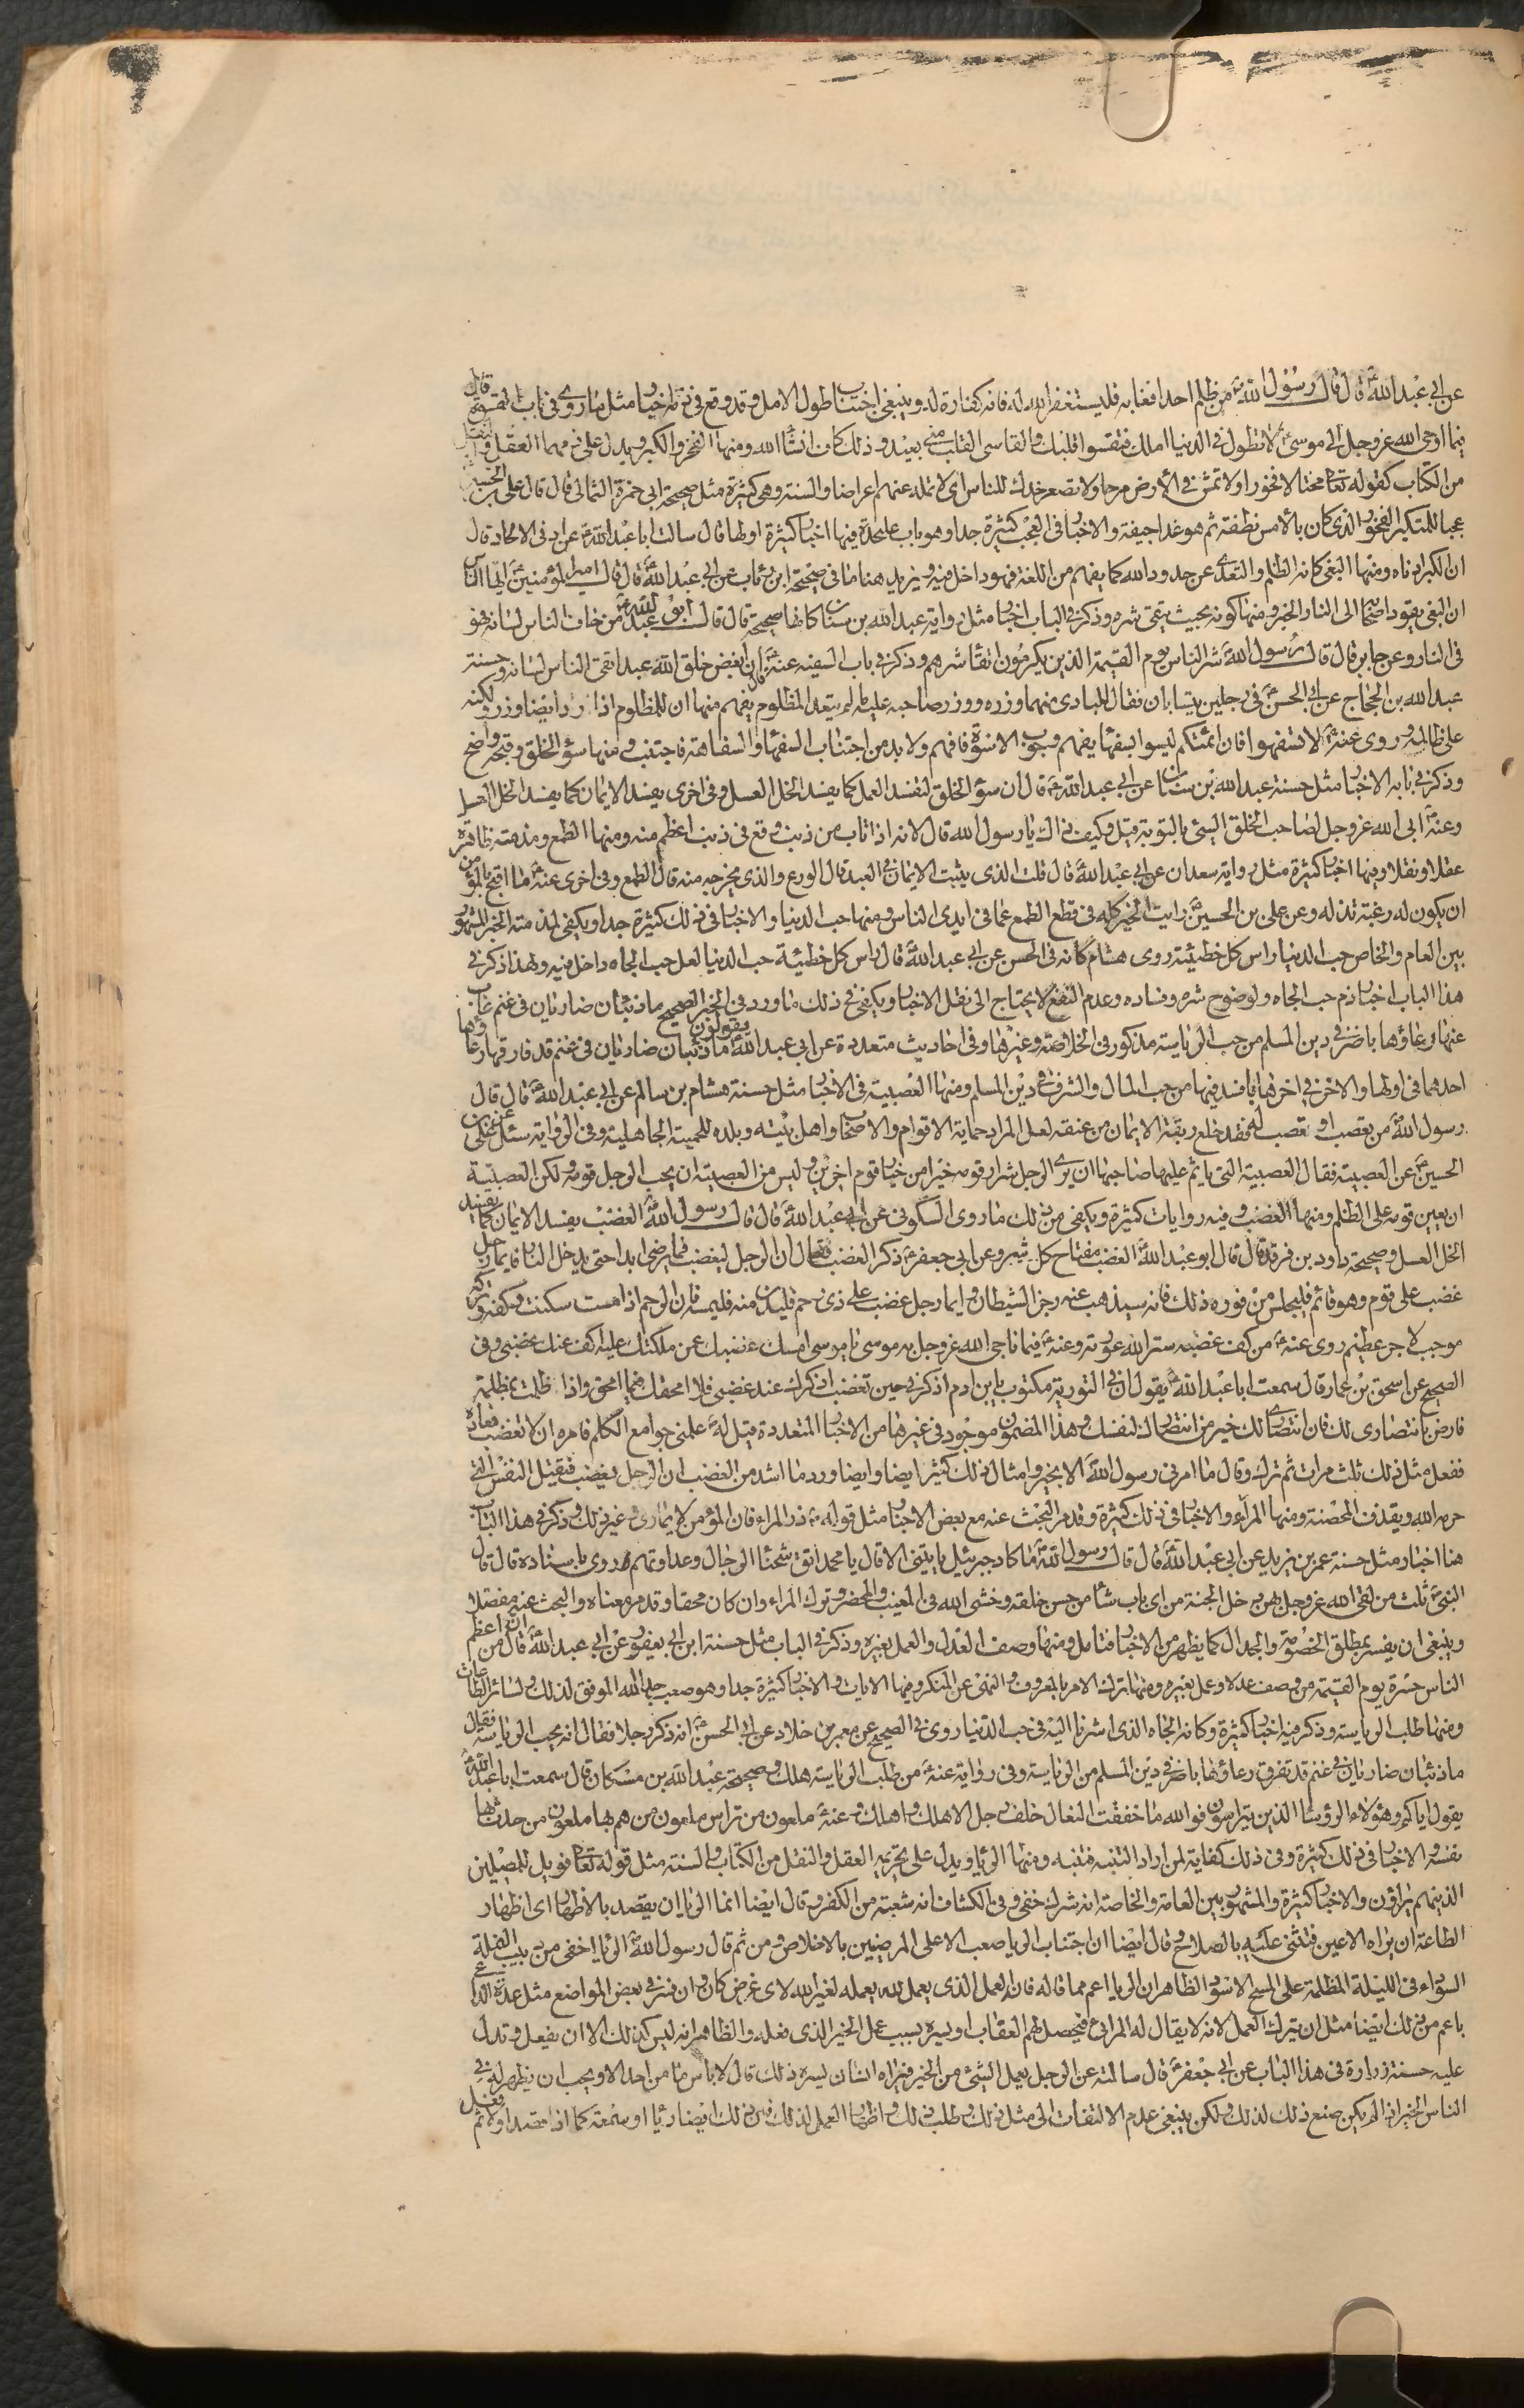 عن ابي عبد الله ع قال قال رسول الله ص من ظلم احدا ففاته فليستغفر الله له فانه كفارة له وينبغي اجتناب طول الامل وقد وقع في ذمه اخبار مثل ما روي في باب القسوة قال
فيما اوحى الله عز وجل الى موسى ع لا تطول في الدنيا املك فتقسو قلبك والقاسي القلب مني بعيد وذلك كاف انشاء الله ومنها الفخر والكبر ويدل على ذمهما العقل والنقل
من الكتاب كقوله تعا مختالا فخورا ولا تمش في الأرض مرحا ولا تصعر خدك للناس اي لا تمله عنهم اعراضا والسنة وهي كثيرة مثل صحيحة ابي حمزة الثمالي قال قال علي بن الحسين ع
عجبا للمتكبر الفخور الذي كان بالأمس نطفة ثم هو غدا جيفة والاخبار في العجب كثيرة جدا وهو باب عليحدة فيها اخبار كثيرة اولها قال سالت ابا عبد الله ع عن ادنى الالحاد قال
ان الكبر ادناه ومنها البغي كانه الظلم والتعدي عن حدود الله كما يفهم من اللغة فهو داخل فيه ويزيد هنا ما في صحيحة ابن رئاب عن ابي عبد الله ع قال قال امير المؤمنين ع ايها الناس
ان البغي يقود اصحابه الى النار الخبر ومنها كونه بحيث يتقى شره وذكر في الباب اخبار مثل رواية عبد الله بن سنان كانها صحيحة قال قال ابو عبد الله ع من خاف الناس لسانه فهو
في النار وعن جابر قال قال رسول الله ص شر الناس يوم القيمة الذين يكرمون اتقاء شرهم وذكر في باب السفه عنه ع قال ان ابغض خلق الله عبد اتقى الناس لسانه وحسنة
عبد الله بن الحجاج عن ابي الحسن ع في رجلين يتسابان فقال البادي منهما وزره ووزر صاحبه عليه ما لم يتعد المظلوم يفهم منها ان للمظلوم اذا زاد ايضا وزر ولكنه
على ظالمه وروى عنه ع لا تسفهوا فان ائمتكم ليسوا بسفهاء يفهم وجوب الاسوة فافهم ولا بد من اجتناب السفهاء والسفاهة فاجتنب ومنها سؤ الخلق وقبحه واضح
وذكر في بابه الاخبار مثل حسنة عبد الله بن سنان عن ابي عبد الله ع قال ان سؤ الخلق لتفسد العمل كما يفسد الخل العسل وفي اخرى يفسد الايمان كما يفسد الخل العسل
وعنه ع ابى الله عز وجل لصاحب الخلق السيئ بالتوبة قيل وكيف ذاك يا رسول الله قال لانه اذا تاب من ذنب وقع في ذنب اعظم منه ومنها الطمع ومذمته ظاهرة
عقلا ونقلا وفيها اخبار كثيرة مثل رواية سعدان عن ابي عبد الله ع قال قلت الذي يثبت الايمان في العبد قال الورع والذي يخرجه منه قال الطمع وفي اخرى عنه ع ما اقبح بالمؤمن
ان يكون له رغبة تذله وعن علي بن الحسين ع رايت الخير كله في قطع الطمع عما في ايدي الناس ومنها حب الدنيا والاخبار في ذلك كثيرة جدا ويكفي لمذمته الخبر المشهور
بين العام والخاص حب الدنيا راس كل خطيئة روى هشام كانه في الحسن عن ابي عبد الله ع قال راس كل خطيئة حب الدنيا لعل حب الجاه داخل فيه ولهذا ذكر في
هذا الباب اخبار ذم حب الجاه ولوضوح شره وفساده وعدم النفع لا يحتاج الى نقل الاخبار ويكفي في ذلك ما ورد في الخبر الصحيح ما ذئبان ضاريان في غنم غاب
عنها رعاؤها باضر في دين المسلم من حب الرياسة مذكور في الخلاصة وغيرها وفي احاديث متعددة عن ابي عبد الله ع يقولون ما ذئبان ضاريان في غنم قد فارقها رعاؤها
احدهما في اولها والاخر في اخرها بافسد فيها من حب المال والشرف في دين المسلم ومنها العصبية في الاخبار مثل حسنة هشام بن سالم عن ابي عبد الله ع قال قال
رسول الله ص من تعصب او تعصب له فقد خلع ربقة الايمان من عنقه لعل المراد حماية الاقوام والاصحاب واهل بيته وبلده للحمية الجاهلية وفي الرواية سئل علي بن
الحسين ع عن العصبية فقال العصبية التي ياثم عليها صاحبها ان يرى الرجل شرار قومه خيرا من خيار قوم اخرين وليس من العصبية ان يحب الرجل قومه ولكن العصبية
ان يعين قومه على الظلم ومنها الغضب وفيه روايات كثيرة ويكفي من ذلك ما روى السكوني عن ابي عبد الله ع قال قال رسول الله ص الغضب يفسد الايمان كما يفسد
الخل العسل وصحيحة داود بن فرقد قال قال ابو عبد الله ع الغضب مفتاح كل شر وعن ابي جعفر ع ذكر الغضب فقال ان الرجل ليغضب فما يرضى ابدا حتى يدخل النار فايما رجل
غضب على قوم وهو قائم فليجلس من فوره ذلك فانه سيذهب عنه رجز الشيطان وايما رجل غضب على ذي رحم فليدن منه فليمسه فان الرحم اذا مست سكنت وكفه وتركه
موجب لاجر عظيم روي عنه ع من كف غضبه ستر الله عورته وعنه ع فيما ناجى الله عز وجل به موسى يا موسى امسك غضبك عمن ملكتك عليه اكف عنك غضبي وفي
الصحيح عن اسحق بن عمار قال سمعت ابا عبد الله ع يقول ان في التورية مكتوب يا بن ادم اذكرني حين تغضب اذكرك عند غضبي فلا امحقك فيما امحق واذا ظلمت بمظلمة
فارض بانتصاري لك فان انتصاري لك خير من انتصارك لنفسك وهذا المضمون موجود في غيرها من الاخبار المتعددة قيل له ص علمني جوامع الكلم فامره ان لا تغضب فعاد
ففعل مثل ذلك ثلث مرات ثم ترك وقال ما امرني رسول الله ص الا بخير وامثال ذلك كثير ايضا وايضا ورد ما اشد من الغضب ان الرجل يغضب فيقتل النفس التي
حرم الله ويقذف المحصنة ومنها المراء والاخبار في ذلك كثيرة وقد مر البحث عنه مع بعض الاخبار مثل قوله ص ذر المراء فان المؤمن لا يماري وغير ذلك وذكر في هذا الباب
هنا اخبار مثل حسنة عمر بن يزيد عن ابي عبد الله ع قال قال رسول الله ص ما كاد جبرئيل ياتيني الا قال يا محمد اتق شحناء الرجال وعداوتهم وروى باسناده قال قال
النبي ص ثلث من لقي الله عز وجل بهن دخل الجنة من اي باب شاء من حسن خلقه وخشي الله في المغيب والمحضر وترك المراء وان كان محقا وقد مر معناه والبحث عنه مفصلا
وينبغي ان يفسر بمطلق الخصومة والجدال كما يظهر من الاخبار فتامل ومنها وصف العدل والعمل بغيره وذكر في الباب مثل حسنة ابن ابي يعفور عن ابي عبد الله ع قال ان من اعظم
الناس حسرة يوم القيمة من وصف عدلا وعمل بغيره ومنها ترك الامر بالمعروف والنهي عن المنكر وفيها الايات والاخبار كثيرة جدا وهو صعب جدا الله الموفق لذلك ولسائر الطاعات
ومنها طلب الرياسة وذكر فيه اخبار كثيرة وكانه الجاه الذي اشرنا اليه في حب الدنيا روى في الصحيح عن معمر بن خلاد عن ابي الحسن ع انه ذكر رجلا فقال انه يحب الرياسة فقال
ما ذئبان ضاريان في غنم قد تفرق رعاؤها باضر في دين المسلم من الرياسة وفي رواية عنه ع من طلب الرياسة هلك وصحيحة عبد الله بن مسكان قال سمعت ابا عبد الله ع
يقول اياكم وهؤلاء الرؤساء الذين يتراسون فوالله ما خفقت النعال خلف رجل الا هلك واهلك وعنه ع ملعون من تراس ملعون من هم بها ملعون من حدث بها
نفسه والاخبار في ذلك كثيرة وفي ذلك كفاية لمن اراد التنبه فتنبه ومنها الرياء ويدل على تحريمه العقل والنقل من الكتاب والسنة مثل قوله تعا فويل للمصلين
الذينهم يراؤن والاخبار كثيرة والمشهور بين العامة والخاصة انه شرك خفي وفي الكشاف انه شعبة من الكفر وقال ايضا انما الرياء ان يقصد بالاظهار اي اظهار
الطاعة ان يراه الاعين فتثني عليه بالصلاح وقال ايضا ان اجتناب الرياء صعب الا على المرضيين بالاخلاص ومن ثم قال رسول الله ص الرياء اخفى من دبيب النملة
السوداء في الليلة المظلمة على المسح الاسود والظاهر ان الرياء اعم مما قاله فان العمل الذي يعمل لله يعمله لغير الله لاي غرض كان وان فسر في بعض المواضع مثل عدة الداعي
باعم من ذلك ايضا مثل ان يترك العمل لانه لا يقال له المرائي فيحصل لهم العقاب او يسره بسبب عمل الخير الذي فعله والظاهر انه ليس كذلك الا ان يفعل وتدل
عليه حسنة زرارة في هذا الباب عن ابي جعفر ع قال سالته عن الرجل يعمل الشيئ من الخير فيراه انسان فيسره ذلك قال لا باس ما من احد الا ويحب ان يظهر له في
الناس الخير اذا لم يكن صنع ذلك لذلك ولكن ينبغي عدم الالتفات الى مثل ذلك وطلب ذلك واظهار العمل لذلك فان ذلك ايضا رياء او سمعة كما اذا قصد اولا ثم فعل